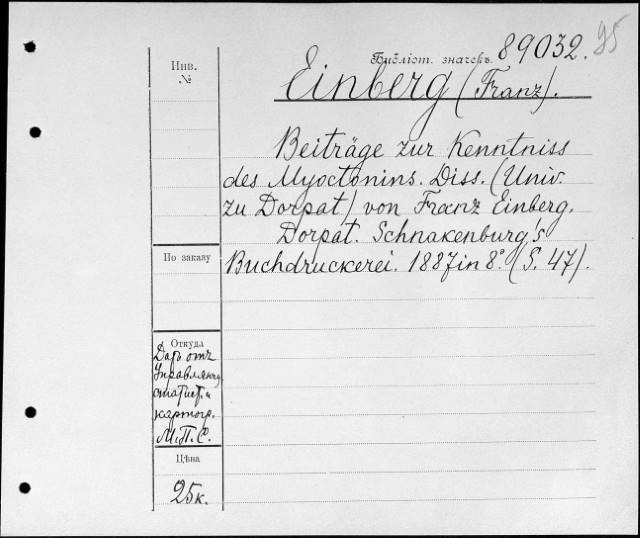 Библіот. значекъ. 89032. 95
Инв.
№
Einberg (Franz).
Beiträge zur Kenntniss
des Myoctonins. Diss. (Univ.
zu Dorpat) von Franz Einberg.
Dorpat. Schnakenburg's
Buchdruckerei. 1887 in 8°. (S. 47).
По заказу
Откуда
Даръ отъ
статист. и
картогр.
М.П.С.
Цѣна
25к.